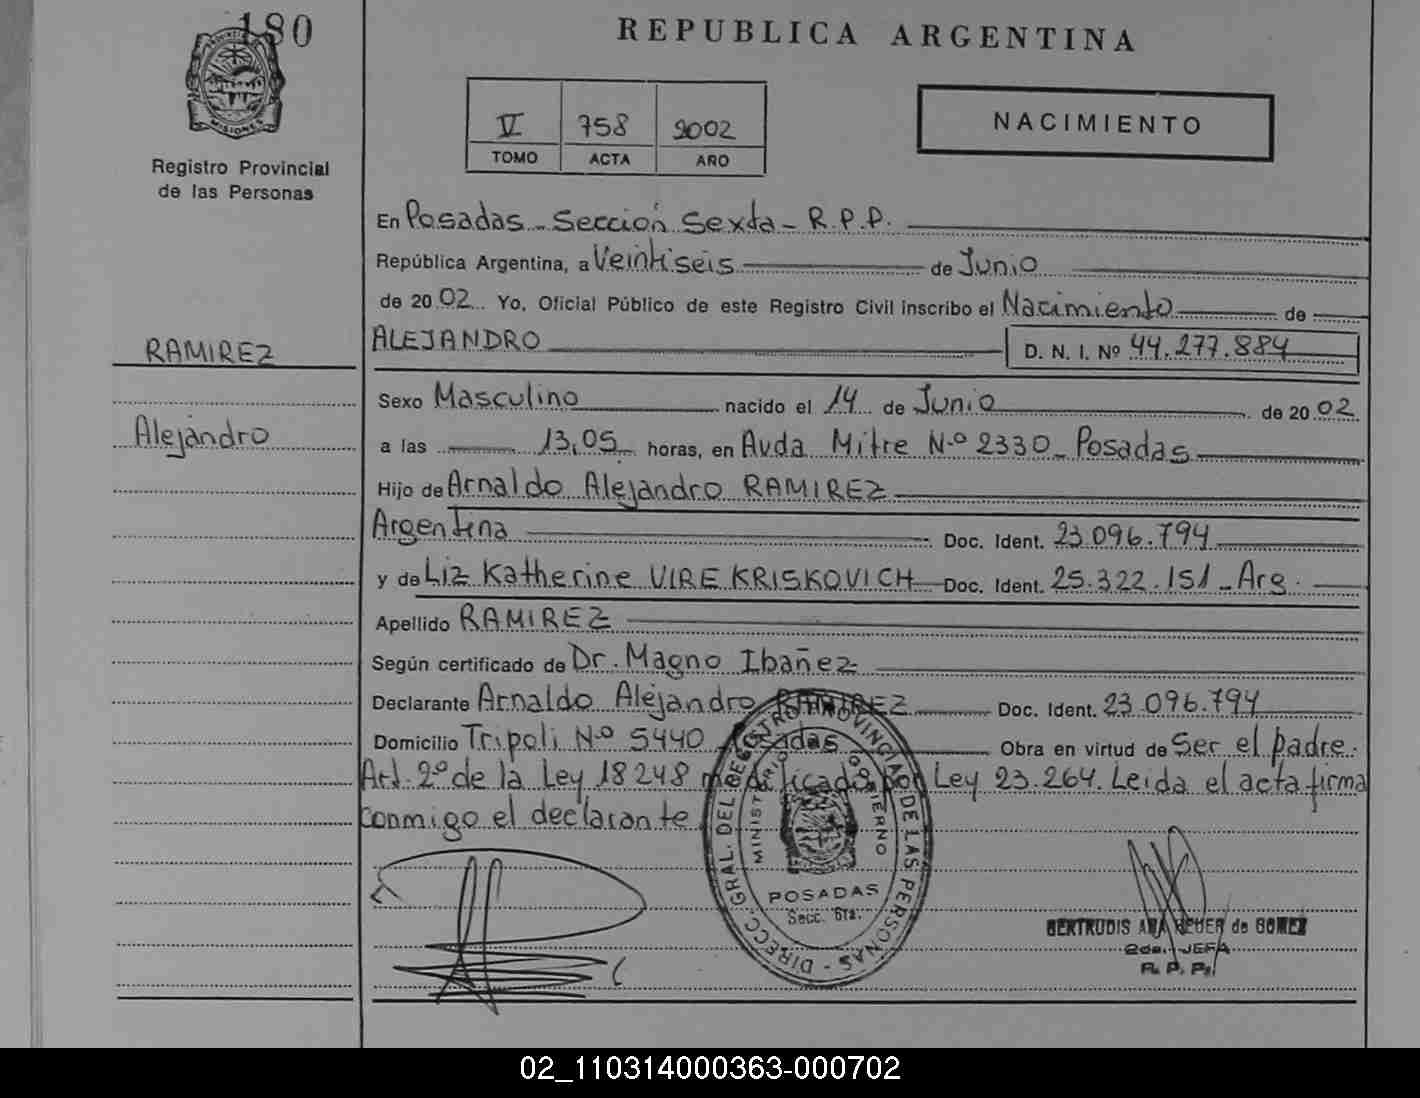 180
REPUBLICA ARGENTINA
PROVINCIA
MISIONES
Registro Provincial
de las Personas
V 758 2002
TOMO ACTA AÑO
NACIMIENTO
En Posadas - Sección Sexta - R.P.P.
República Argentina, a Veintiseis de Junio
de 2002 Yo, Oficial Público de este Registro Civil inscribo el Nacimiento de
RAMIREZ
ALEJANDRO D. N. I. Nº 44.277.884
Sexo Masculino nacido el 14 de Junio de 2002
Alejandro
a las 13,05 horas, en Avda Mitre N.º 2330 - Posadas
Hijo de Arnaldo Alejandro RAMIREZ
Argentina Doc. Ident. 23.096.794
y de Liz Katherine VIRE KRISKOVICH Doc. Ident. 25.322.151 - Arg.
Apellido RAMIREZ
Según certificado de Dr. Magno Ibañez
Declarante Arnaldo Alejandro RAMIREZ Doc. Ident. 23.096.794
Domicilio Tripoli N.º 5440 Posadas Obra en virtud de Ser el padre.
Art. 2º de la Ley 18248 modificado por Ley 23.264. Leida el acta firma
conmigo el declarante
DIRECC. GRAL. DEL REGISTRO PROVINCIAL DE LAS PERSONAS -
MINISTERIO GOBIERNO
POSADAS
Secc. 6ta.
GERTRUDIS ANA de GOMEZ
2da. JEFA
R. P. P.
02_110314000363-000702